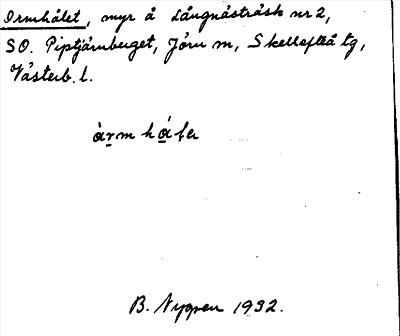 Ormhålet, myr å Långnästräsk nr 2,
SO. Piptjärnberget, Jörn m, Skellefteå tg,
Västerb. l.
àrmhá̱ḷer
B. Nygren 1932.